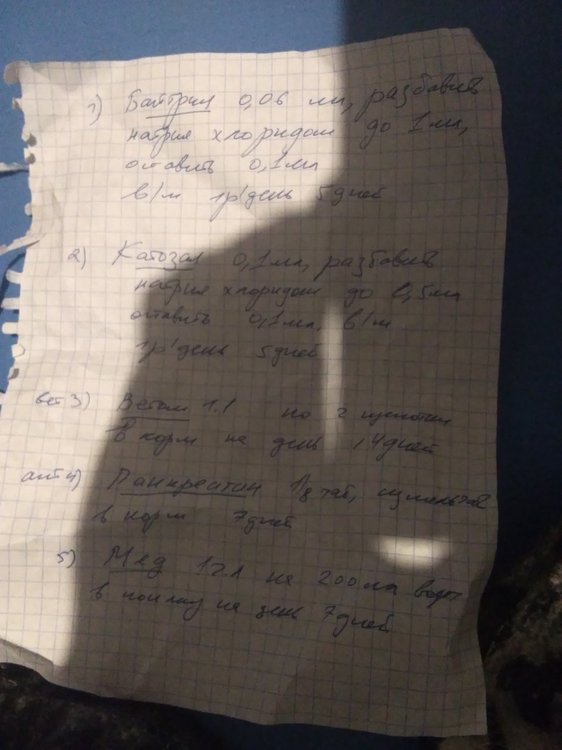 1) Байтрил 0,06 мл, разбавить
натрия хлоридом до 1 мл,
оставить 0,1мл
в/м 1р/день 5 дней
2) Катозал 0,1мл, разбавить
натрия хлоридом до 0,5мл
оставить 0,1мл, в/м
1р/день 5дней
вет 3) Ветом 1.1 по 2 щепотки
В корм на день 14дней
апт 4) Панкреатин 1/8 таб, измельчить
в корм 7дней
5) Мёд 1 на 200мл воды
в поилку на день 7дней